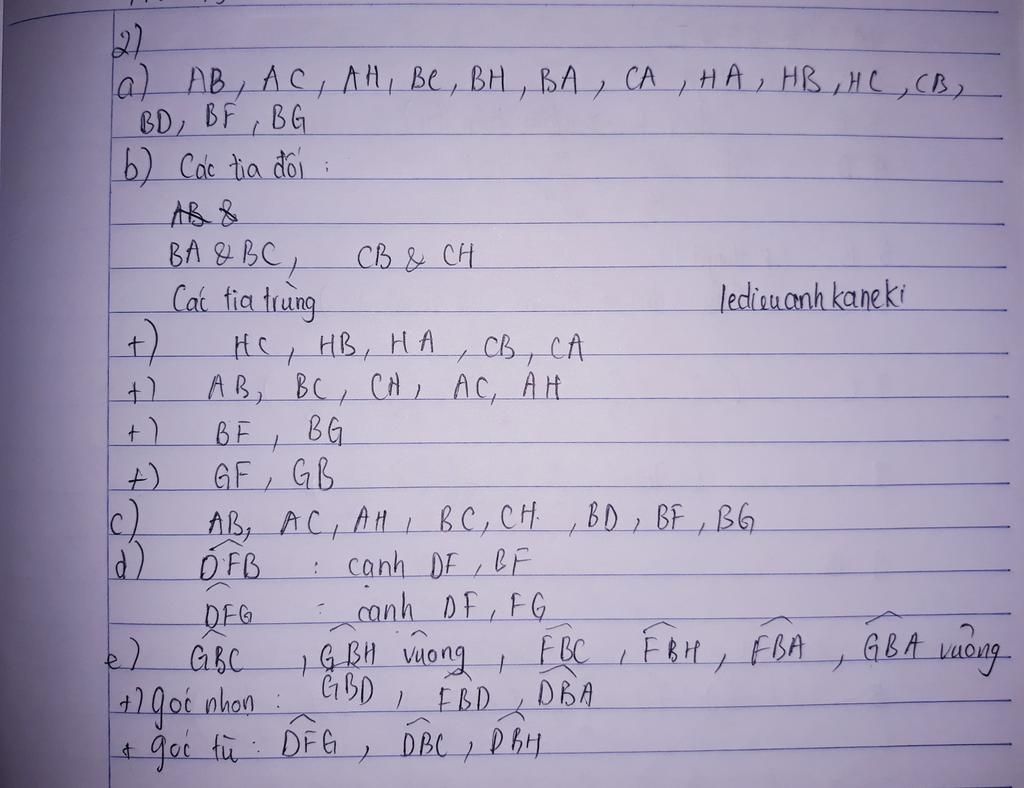 2)
a) AB, AC, AH, BC, BH, BA, CA, HA, HB, HC, CB,
BD, BF, BG
b) Các tia đối :
AB &
BA & BC, CB & CH
Các tia trùng ledieuanhkaneki
+) HC, HB, HA, CB, CA
+) AB, BC, CH, AC, AH
+) BF, BG
+) GF, GB
c) AB, AC, AH, BC, CH, BD, BF, BG
d) DFB : cạnh DF, BF
DFG : cạnh DF, FG
e) GBC, GBH vuông, FBC, FBH, FBA, GBA vuông
+) góc nhọn : GBD, FBD, DBA
+ góc tù : DFG, DBC, DBH